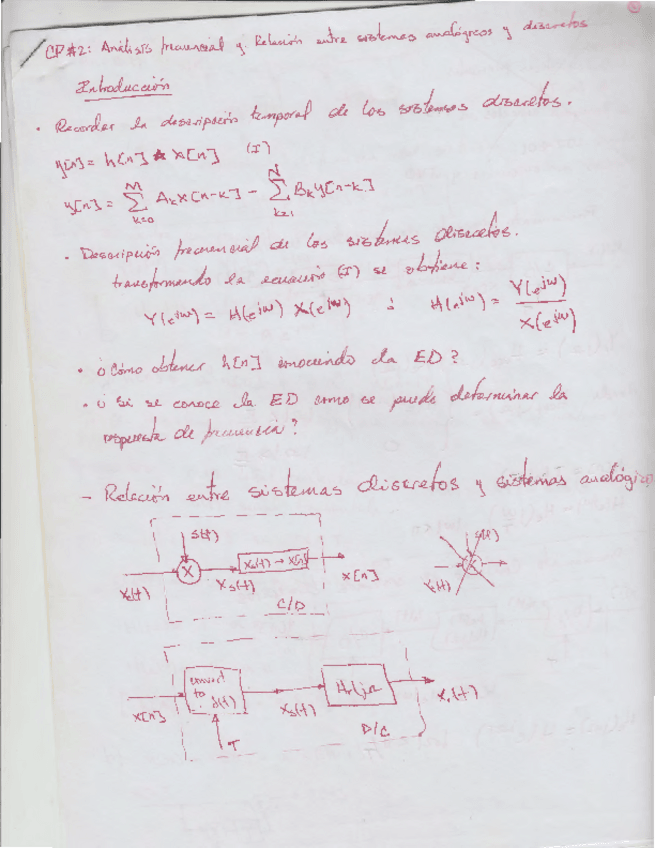 CP#2: Análisis frecuencial y Relación entre sistemas analógicos y discretos
Introducción
• Recordar la descripción temporal de los sistemas discretos.
y[n] = h[n] * x[n] (I)
y[n] = M Σ k=0 Akx[n-k] - N Σ k=1 Bky[n-k]
• Descripción frecuencial de los sistemas discretos.
transformando la ecuación (I) se obtiene:
Y(e^jw) = H(e^jw) X(e^jw) ; H(e^jw) = Y(e^jw) / X(e^jw)
• ¿Cómo obtener h[n] conociendo la ED?
• ¿Si se conoce la ED como se puede determinar la
respuesta de frecuencia?
- Relación entre sistemas discretos y sistemas analógicos
s(t) s(t)
xc(t) X xs(t) xs(t) → x[n] x[n] xc(t)
C/D
x[n] convert to s(t) xs(t) Hr(jΩ xr(t)
T D/C